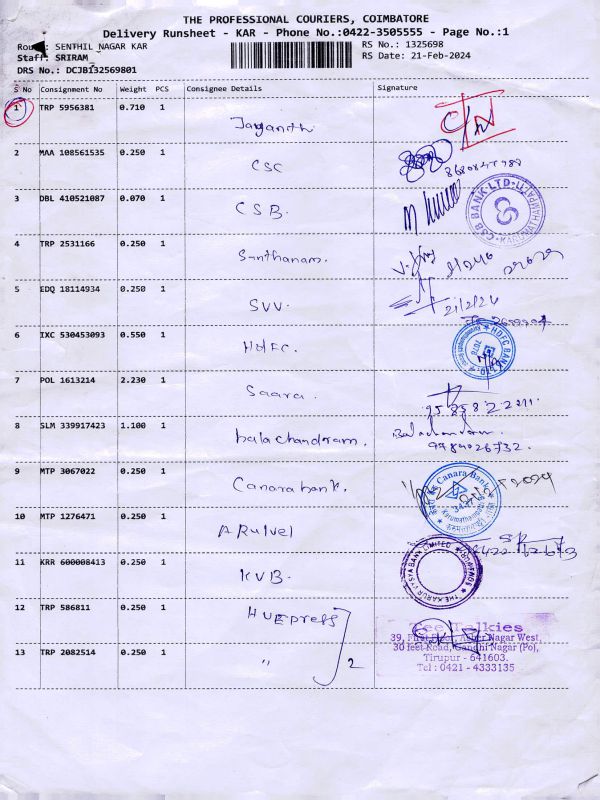 THE PROFESSIONAL COURIERS, COIMBATORE
Delivery Runsheet - KAR - Phone No.:0422-3505555 - Page No.:1
Route: SENTHIL NAGAR KAR
RS No.: 1325698
Staff: SRIRAM
RS Date: 21-Feb-2024
DRS No.: DCJB132569801
S No Consignment No Weight PCS Consignee Details Signature
1 TRP 5956381 0.710 1 Jayanthi
2 MAA 108561535 0.250 1 CSC
3 DBL 410521087 0.070 1 CSB.
CSB BANK LTD
4 TRP 2531166 0.250 1 Santhanam.
5 EDQ 18114934 0.250 1 SVV. 21/2/24
6 IXC 530453093 0.550 1 HDFC.
HDFC BANK LTD.
7 POL 1613214 2.230 1 Saara.
8 SLM 339917423 1.100 1 balachandram. Balachandram.
9789026732.
9 MTP 3067022 0.250 1 Canara bank.
Canara Bank
Karumathampatti
10 MTP 1276471 0.250 1 ARulvel
11 KRR 600008413 0.250 1 KVB.
THE KARUR VYSYA BANK LIMITED
12 TRP 586811 0.250 1 HUEpress
13 TRP 2082514 0.250 1 " 2
Tee Talkies
39, First Floor, Asher Nagar West,
30 feet Road, Gandhi Nagar (Po),
Tirupur - 641603.
Tel : 0421 - 4333135